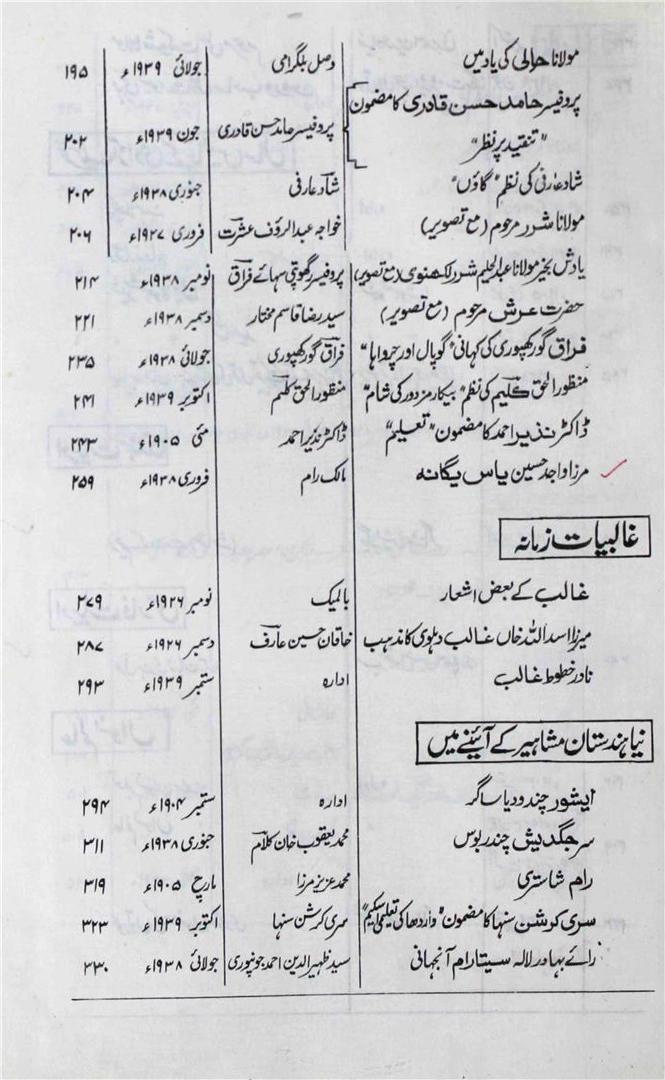 مولانا حالی کی یاد میں وصل بلگرامی جولائی ۱۹۳۹ء ۱۹۵
پروفیسر حامد حسن قادری کا مضمون
"تنقید پر نظر" پروفیسر حامد حسن قادری جون ۱۹۳۹ء ۲۰۲
شاد عارفی کی نظم "گاؤں" شاد عارفی جنوری ۱۹۳۸ء ۲۰۴
مولانا شرر مرحوم (مع تصویر) خواجہ عبدالرؤف عشرت فروری ۱۹۲۷ء ۲۰۶
یادش بخیر مولانا عبدالحلیم شرر لکھنوی (مع تصویر) پروفیسر رگھوپتی سہائے فراق نومبر ۱۹۳۸ء ۲۱۴
حضرت عرش مرحوم (مع تصویر) سید رضا قاسم مختار دسمبر ۱۹۳۸ء ۲۲۱
فراق گورکھپوری کی کہانی "گوپال اور چرواہا" فراق گورکھپوری جولائی ۱۹۳۸ء ۲۳۵
منظور الحق کلیم کی نظم "بیکار مزدور کی شام" منظور الحق کلیم اکتوبر ۱۹۳۹ء ۲۴۱
ڈاکٹر نذیر احمد کا مضمون "تعلیم" ڈاکٹر نذیر احمد مئی ۱۹۰۵ء ۲۴۳
مرزا واجد حسین یاس یگانہ مالک رام فروری ۱۹۳۸ء ۲۵۹
غالبیات زمانہ
غالب کے بعض اشعار بالمیک نومبر ۱۹۲۶ء ۲۷۹
میرزا اسد اللہ خاں غالب دہلوی کا مذہب خاقان حسین عارف دسمبر ۱۹۲۶ء ۲۸۷
نادر خطوط غالب ادارہ ستمبر ۱۹۳۹ء ۲۹۳
نیا ہندستان مشاہیر کے آئینے میں
ایشور چندر ودیا ساگر ادارہ ستمبر ۱۹۰۴ء ۲۹۴
سر جگدیش چندر بوس محمد یعقوب خان کلام جنوری ۱۹۳۸ء ۳۱۱
رام شاستری محمد عزیز مرزا مارچ ۱۹۰۵ء ۳۱۹
سری کرشن سنہا کا مضمون "واردھا کی تعلیمی سکیم" سری کرشن سنہا اکتوبر ۱۹۳۹ء ۳۲۳
رائے بہادر لالہ سیتا رام آنجہانی سید ظہیر الدین احمد جونپوری جولائی ۱۹۳۸ء ۲۳۰